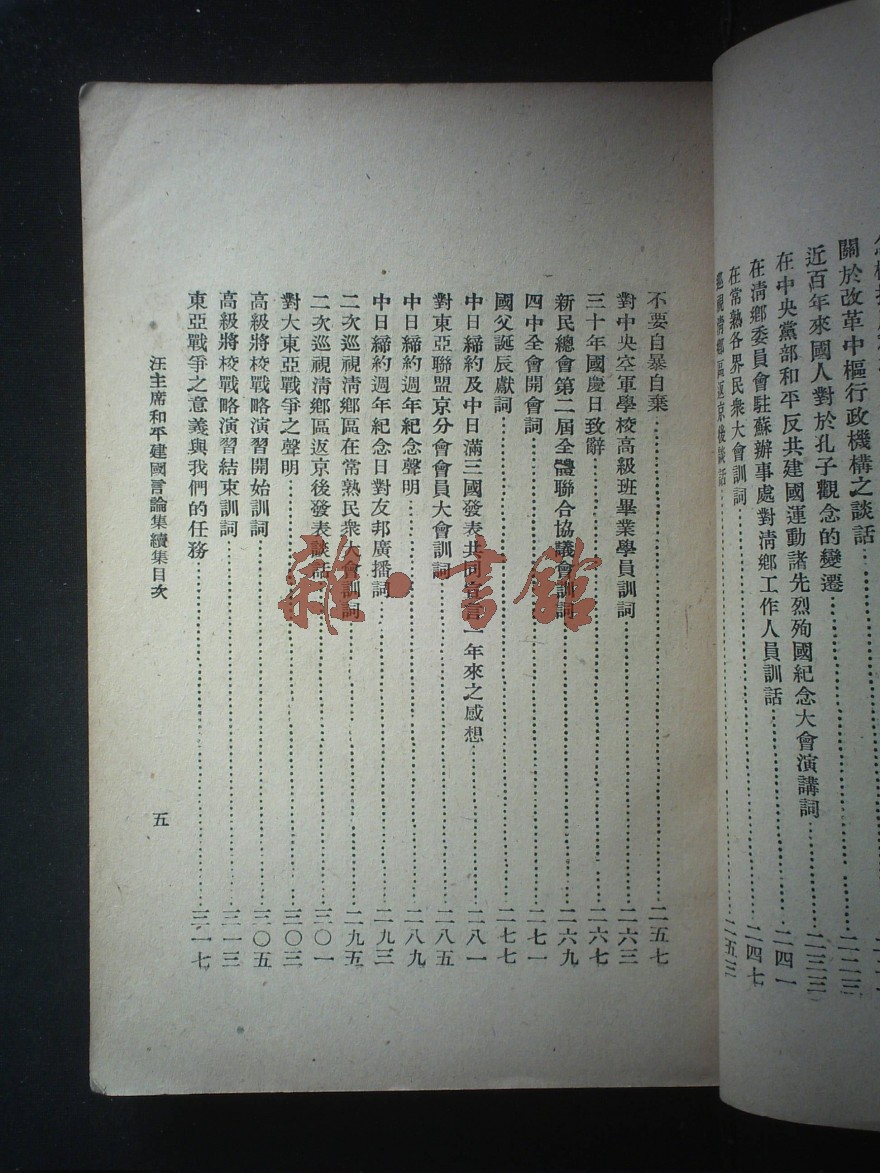 關於改革中樞行政機構之談話
近百年來國人對於孔子觀念的變遷……二二三
在中央黨部和平反共建國運動諸先烈殉國紀念大會演講詞……二三三
在清鄉委員會駐蘇辦事處對清鄉工作人員訓話……二四一
在常熟各界民衆大會訓詞……二四七
巡視清鄉區返京後談話……二五三
不要自暴自棄……二五七
對中央空軍學校高級班畢業學員訓詞……二六三
三十年國慶日致辭……二六七
新民總會第二屆全體聯合協議會訓詞……二六九
四中全會開會詞……二七一
國父誕辰獻詞……二七七
中日締約及中日滿三國發表共同宣言一年來之感想……二八一
對東亞聯盟京分會會員大會訓詞……二八五
中日締約週年紀念聲明……二八九
中日締約週年紀念日對友邦廣播詞……二九三
二次巡視清鄉區在常熟民衆大會訓詞……二九五
二次巡視清鄉區返京後發表談話……三〇一
對大東亞戰爭之聲明……三〇三
高級將校戰略演習開始訓詞……三〇五
高級將校戰略演習結束訓詞……三一三
東亞戰爭之意義與我們的任務……三一七
汪主席和平建國言論集續集目次　五
雜·書館